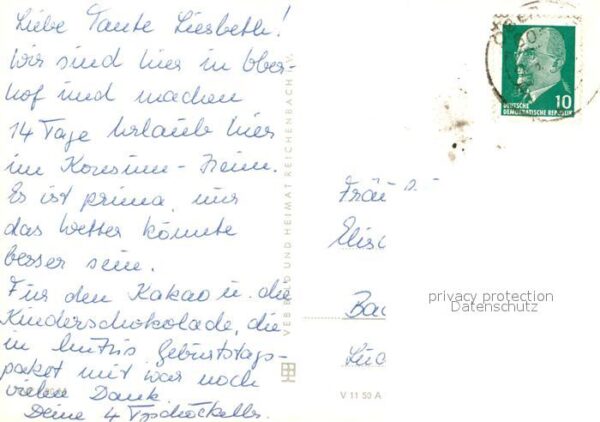 Liebe Tante Liesbeth!
Wir sind hier in Ober-
hof und machen
14 Tage Urlaub hier
im Konsum-Heim.
Es ist prima, nur
das Wetter könnte
besser sein.
Für den Kakao u. die
Kinderschokolade, die
in Geburtstags-
paket mit war noch
vielen Dank.
Deine 4
VEB BILD UND HEIMAT REICHENBACH I. V.
V 11 50 A
10
DEUTSCHE
DEMOKRATISCHE REPUBLIK
Fräu
Elis
Bad
privacy protection
Datenschutz